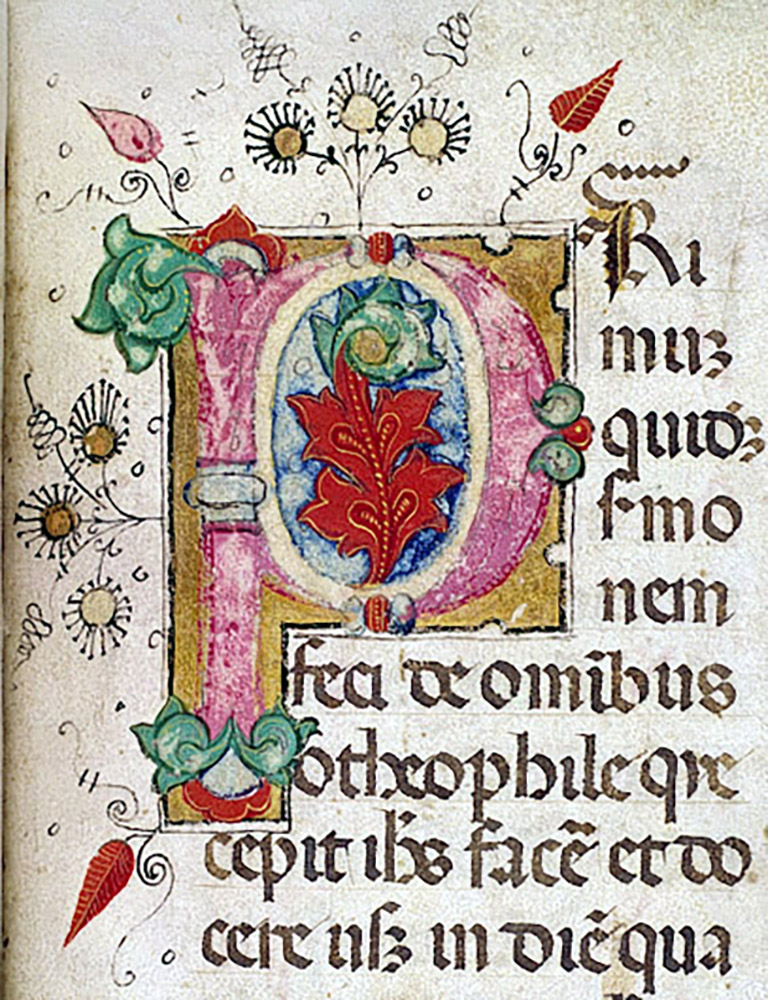 PRi
muꝫ
quidꝫ
s̓mo
nem
feci de omībus
otheophile que
cepit ihs̄ facē et do
cere usꝫ in diē qua